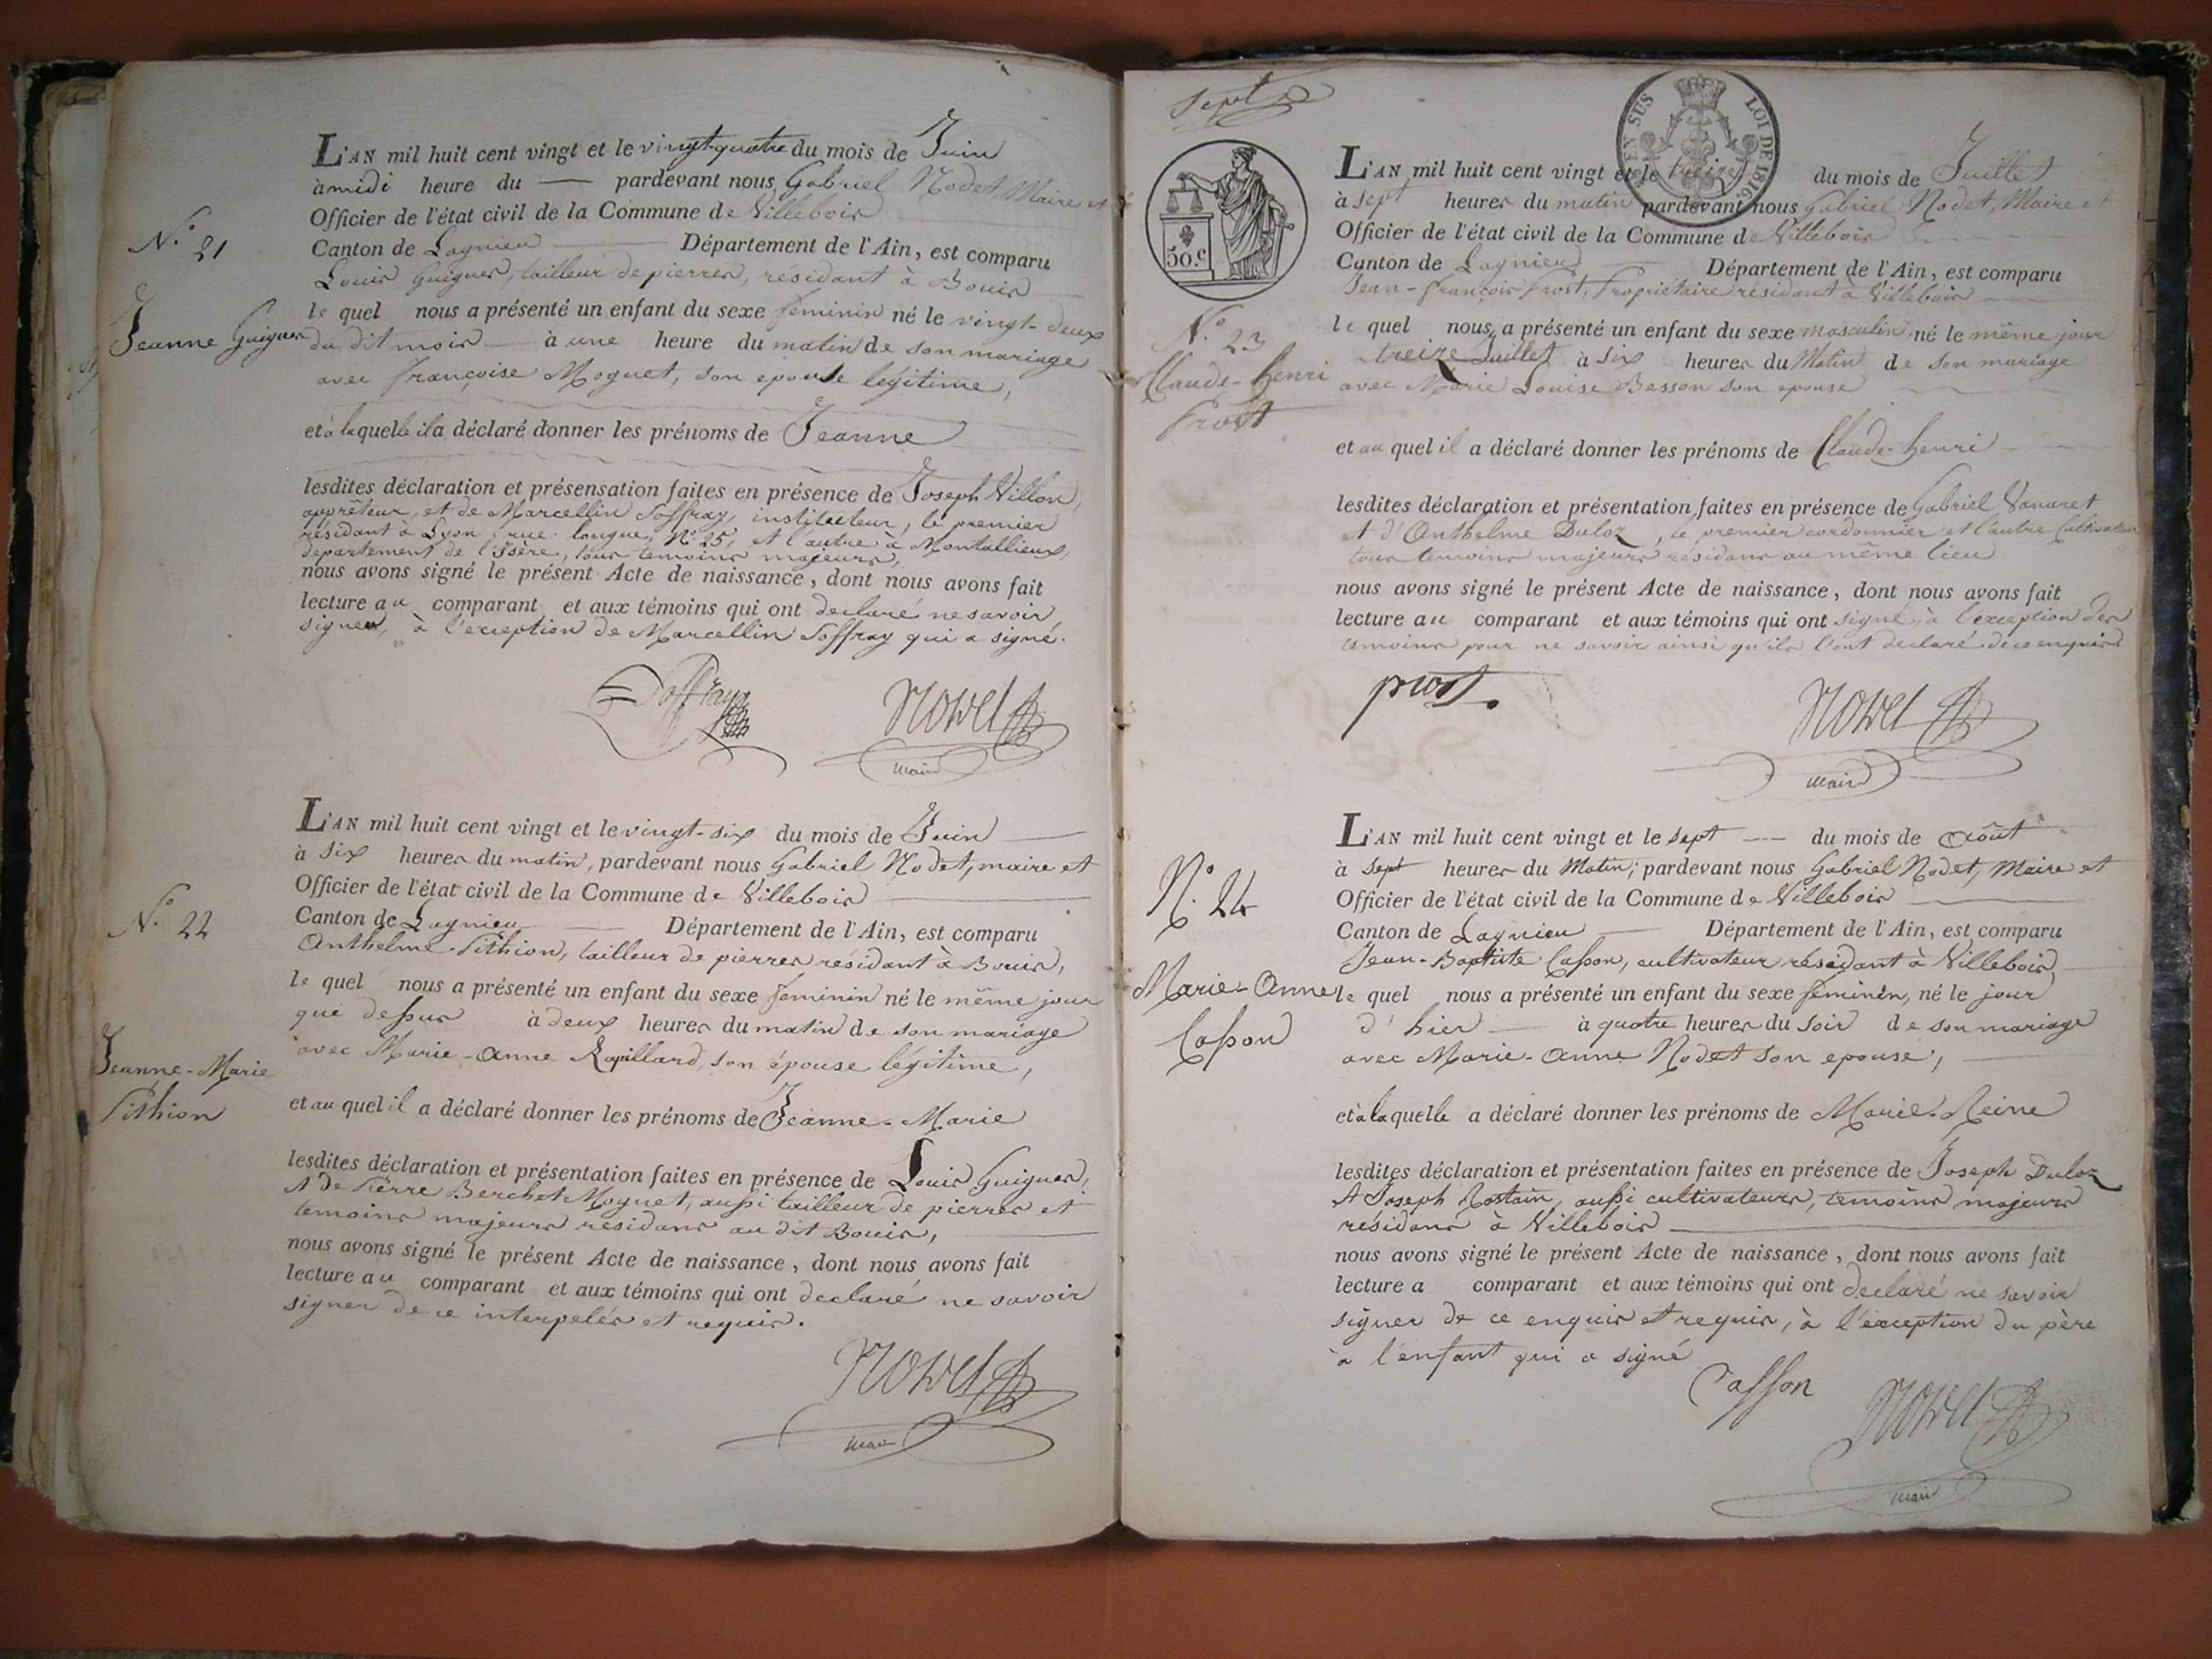 N.° 21
Jeanne Guigues
L'AN mil huit cent vingt et le vingt-quatre du mois de Juin
à midi heure du — pardevant nous Gabriel Nodet, Maire et
Officier de l'état civil de la Commune de Villebois
Canton de Lagnieu — Département de l'Ain, est comparu
Louis Guigues, tailleur de pierres, résidant à Bouis
le quel nous a présenté un enfant du sexe féminin né le vingt-deux
du dit mois — à une heure du matin de son mariage
avec françoise Moguet, son epouse légitime,
et à laquelle il a déclaré donner les prénoms de Jeanne
lesdites déclaration et présensation faites en présence de Joseph Villon,
apprêteur, et de Marcellin Soffray, instituteur, le premier
résidant à Lyon, rue longue, N° 25, et l'autre à Montallieux,
département de l'isère, tous temoins majeurs,
nous avons signé le présent Acte de naissance, dont nous avons fait
lecture au comparant et aux témoins qui ont declaré ne savoir
signer, à l'exception de Marcellin Soffray qui a signé.
Soffray Nodet
maire
N.° 22
Jeanne-Marie
Pithion
L'AN mil huit cent vingt et le vingt-six du mois de Juin
à six heures du matin, pardevant nous Gabriel Nodet, maire et
Officier de l'état civil de la Commune de Villebois
Canton de Lagnieu — Département de l'Ain, est comparu
Anthelme Pithion, tailleur de pierres résidant à Bouis,
le quel nous a présenté un enfant du sexe féminin né le même jour
que dessus à deux heures du matin de son mariage
avec Marie-Anne Rapillard, son épouse légitime,
et au quel il a déclaré donner les prénoms de Jeanne-Marie
lesdites déclaration et présentation faites en présence de Louis Guigues,
et de Pierre Berchet Moguet, aussi tailleur de pierres et
temoins majeurs résidans au dit Bouis,
nous avons signé le présent Acte de naissance, dont nous avons fait
lecture au comparant et aux témoins qui ont declaré ne savoir
signer de ce interpelés et requis.
Nodet
maire
Sept
EN SUS LOI DE 1816
50.c
N.° 23
Claude-henri
Prost
L'AN mil huit cent vingt et le treize du mois de Juillet
à sept heures du matin pardevant nous Gabriel Nodet, Maire et
Officier de l'état civil de la Commune de Villebois
Canton de Lagnieu — Département de l'Ain, est comparu
Jean-françois Prost, Propriétaire résidant à Villebois
le quel nous a présenté un enfant du sexe masculin né le même jour
treize Juillet à six heures du Matin de son mariage
avec Marie Louise Besson son epouse
et au quel il a déclaré donner les prénoms de Claude-henri
lesdites déclaration et présentation faites en présence de Gabriel Vanaret
et d'Anthelme Duloz, le premier cordonnier et l'autre Cultivateur
tous temoins majeurs résidans au même lieu
nous avons signé le présent Acte de naissance, dont nous avons fait
lecture au comparant et aux témoins qui ont signé, à l'exception des
temoins pour ne savoir ainsi qu'ils l'ont declaré de ce enquis
prost. Nodet
maire
N.° 24
Marie-Anne
Casson
L'AN mil huit cent vingt et le sept --- du mois de Août
à sept heures du Matin; pardevant nous Gabriel Nodet, Maire et
Officier de l'état civil de la Commune de Villebois
Canton de Lagnieu — Département de l'Ain, est comparu
Jean-Baptiste Casson, cultivateur résidant à Villebois
le quel nous a présenté un enfant du sexe féminin, né le jour
d'hier — à quatre heures du soir de son mariage
avec Marie-Anne Nodet son epouse,
et à laquelle a déclaré donner les prénoms de Marie-Reine
lesdites déclaration et présentation faites en présence de Joseph Duloz
et Joseph Rostain, aussi cultivateurs, temoins majeurs
résidans à Villebois
nous avons signé le présent Acte de naissance, dont nous avons fait
lecture a comparant et aux témoins qui ont declaré ne savoir
signer de ce enquis et requis, à l'exception du père
à l'enfant qui a signé
Casson Nodet
maire